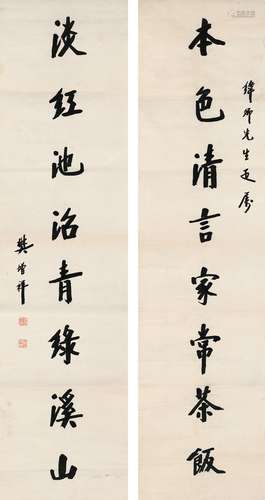 本色清言家常茶飯
先生
淡紅池沼青綠溪山
樊增祥